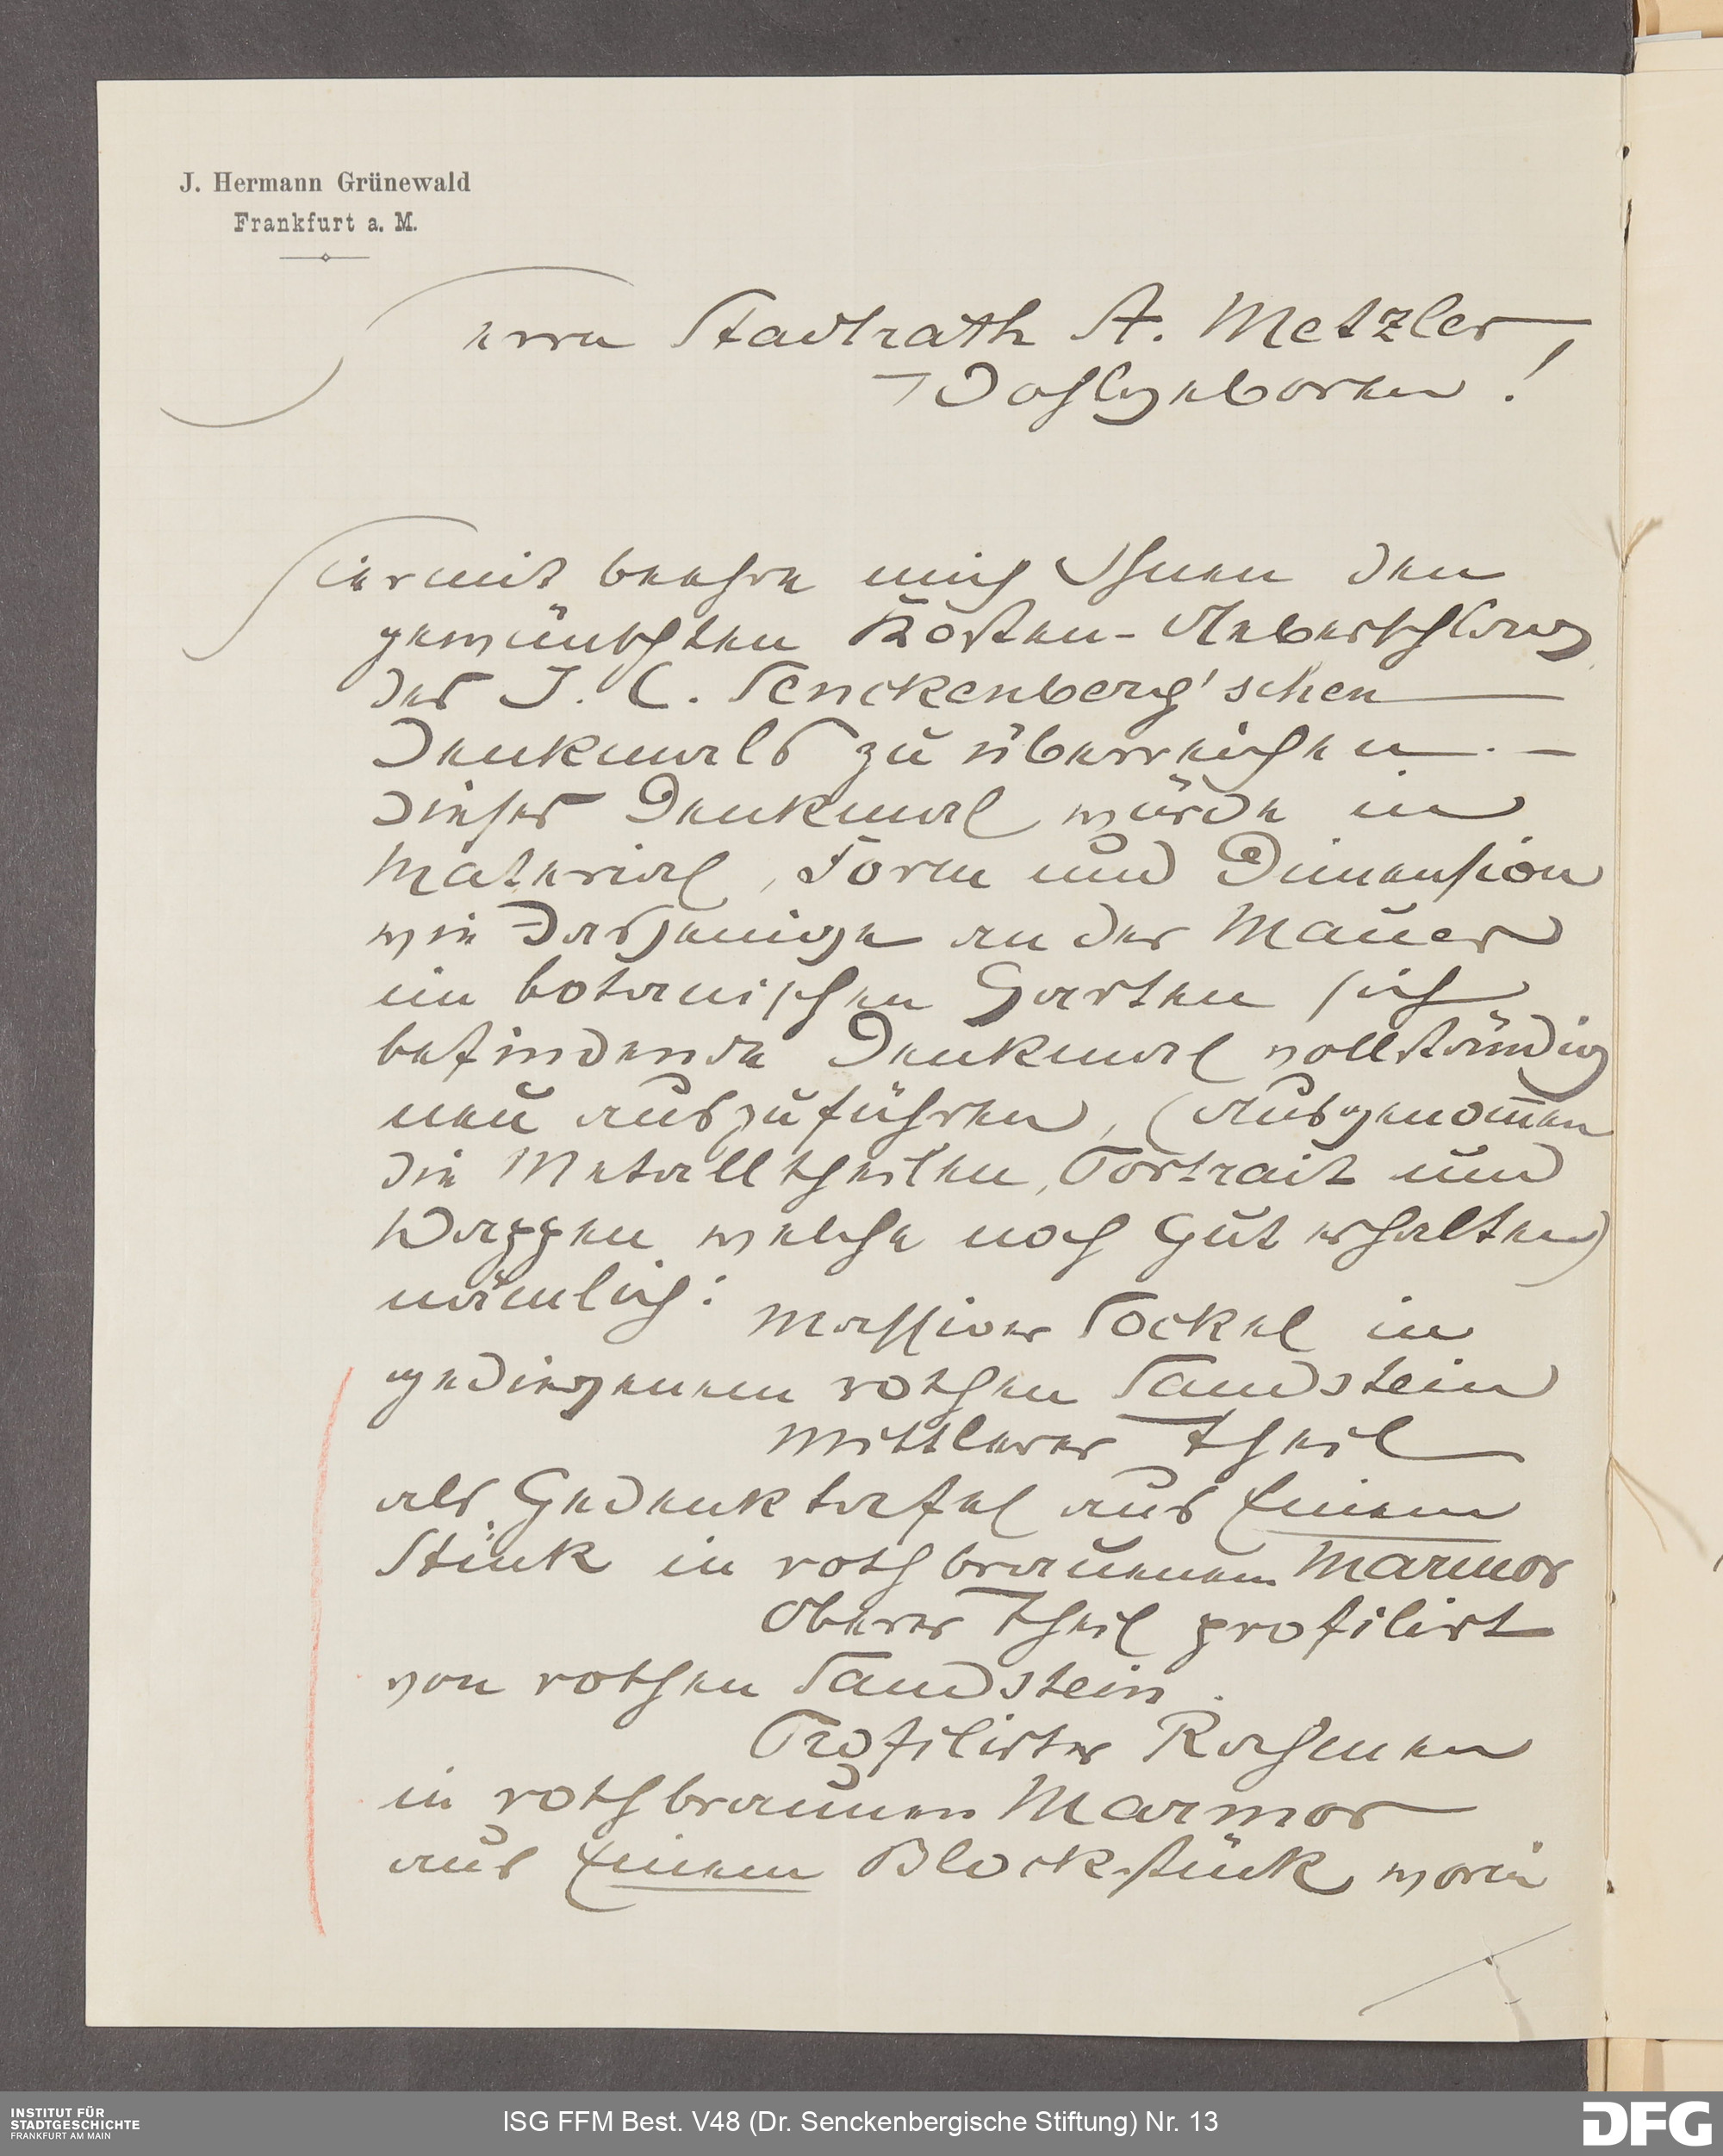 J. Hermann Grünewald
Frankfurt a. M.
Herrn Stadtrath A. Metzler,
Hochlgeboren!
Hiermit beehre mich Ihnen den
gewünschten Kosten-Ueberschlag
des J. C. Senckenberg'schen
Denkmals zu überreichen. —
Dieses Denkmal würde in
Material, Form und Dimension
wie Dasjenige an der Mauer
im botanischen Garten sich
befindende Denkmal vollständig
neu auszuführen, (ausgenom̅en
die Metalltheilen, Portrait und
Wappen welche noch gut erhalten)
nämlich:
Massiver Sockel in
gediegenem rothen Sandstein
Mittlerer Theil
als Gedenktafel aus Einem
Stück in rothbraunem Marmor
Oberer Theil profilirt
von rothen Sandstein.
Profilirter Rahmen
in rothbraunen Marmor
aus Einem Blockstück worin
INSTITUT FÜR
STADTGESCHICHTE
FRANKFURT AM MAIN
ISG FFM Best. V48 (Dr. Senckenbergische Stiftung) Nr. 13
DFG